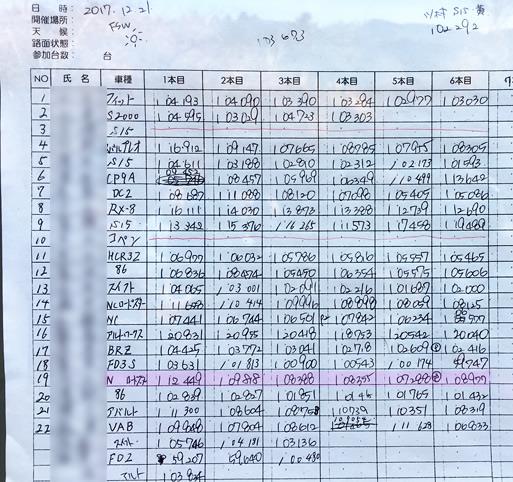 日 時: 2017.12.21
開催場所: FSW
天 候:
路面状態:
参加台数: 台
103 673
ツ村 S15 黄
102 292
NO 氏名 車種 1本目 2本目 3本目 4本目 5本目 6本目
1 フィット 1 04 193 1 04 090 1 03 390 1 03 284 1 02 977 1 03 030
2 S2000 1 04 595 1 03 029 1 04 723 1 03 303
3 S15
4 1 16 912 1 09 147 1 07 665 1 08 785 1 07 955 1 08 305
5 S15 1 04 611 1 03 188 1 02 810 1 02 312 1 02 173 1 01 593
6 CP9A 1 08 457 1 05 909 1 06 349 1 10 499 1 13 642
7 DC2 1 11 088 1 08 120 1 07 098 1 05 405 1 05 086
8 RX-8 1 16 111 1 14 030 1 13 873 1 13 388 1 12 739 1 12 690
9 S15 1 13 342 1 15 376 1 16 265 1 11 573 1 17 458 1 19 489
10 コペン
11 HCR32 1 06 907 1 06 032 1 05 786 1 05 816 1 05 557 1 05 465
12 86 1 06 836 1 05 450 1 06 354 1 05 575 1 05 606
13 スイフト 1 04 065 1 03 001 1 02 091 1 02 216 1 01 687 1 02 000
14 NCロードスター 1 11 658 1 10 414 1 09 996 1 08 898 1 08 059 1 08 125
15 NC 1 07 441 1 06 744 1 06 501 1 07 842 1 06 234
16 アルトワークス 1 20 831 1 20 955 1 20 418 1 18 753 1 20 542 1 20 040
17 BRZ 1 04 425 1 03 772 1 03 041 1 02 718 1 02 609 1 02 416
18 FD3S 1 03 631 1 01 813 1 00 900 1 00 543 1 00 174
19 N ロードスター 1 12 449 1 09 818 1 08 388 1 08 355 1 07 288 1 08 977
20 86 1 02 839 1 02 827 1 01 851 1 01 765 1 01 432
21 アバルト 1 11 300 1 08 604 1 08 758 1 10 739 1 10 351 1 08 319
22 VAB 1 09 808 1 07 804 1 08 612 1 11 628 1 06 833
1 05 746 1 04 181 1 03 136
FD2 59 207 59 640 1 00 480
アルト 1 03 834